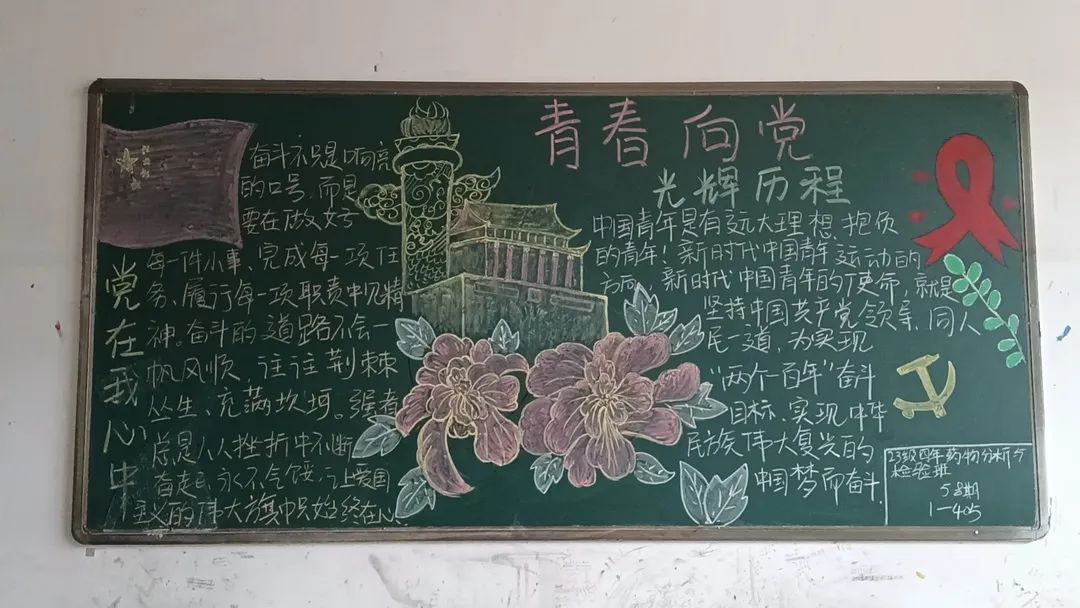 青春向党
光辉历程
党在我心中
奋斗不只是响亮
的口号,而是
要在做好
每一件小事、完成每一项任
务、履行每一项职责中见精
神。奋斗的道路不会一
帆风顺 往往荆棘
丛生、充满坎坷。强者
总是从挫折中不断
奋起、永不气馁,让爱国
主义的伟大旗帜始终在心
中国青年是有远大理想、抱负
的青年!新时代中国青年运动的
方向,新时代中国青年的使命,就是
坚持中国共产党领导,同人
民一道,为实现
“两个一百年”奋斗
目标、实现中华
民族伟大复兴的
中国梦而奋斗.
23级四年药物分析与
检验班
5星期
1-405